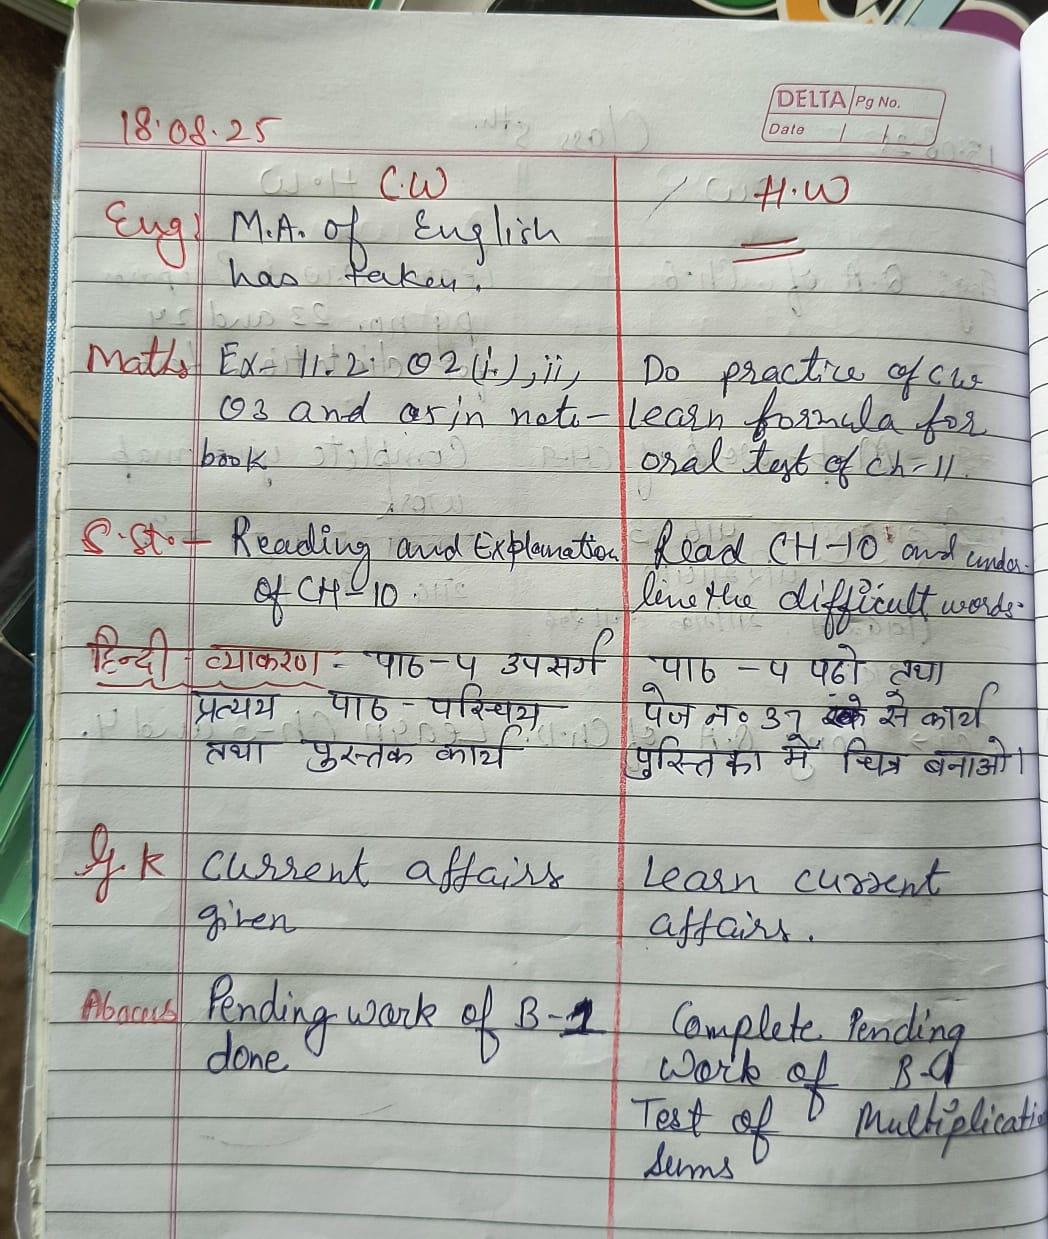 DELTA Pg No.
Date / /
18.08.25
C.W
H.W
Eng: M.A. of English
has taken.
Maths Ex- 11.2 Q2 (i.), ii,
Q3 and as in note-
book,
Do practice of cw
learn formula for
oral test of ch-11.
S.St. - Reading and Explanation
of CH-10.
Read CH-10 and under-
line the difficult words.
हिन्दी व्याकरण - पाठ-५ उपसर्ग
प्रत्यय पाठ - परिश्रय
तथा पुस्तक कार्य
पाठ - ५ पढो तथा
पेज न० 37 से कार्य
पुस्तिका में चित्र बनाओ।
G.K Current affairs
given
Learn current
affairs.
Abacus Pending work of B-1
done
Complete Pending
Work of
Test of Multiplicatio
Sums